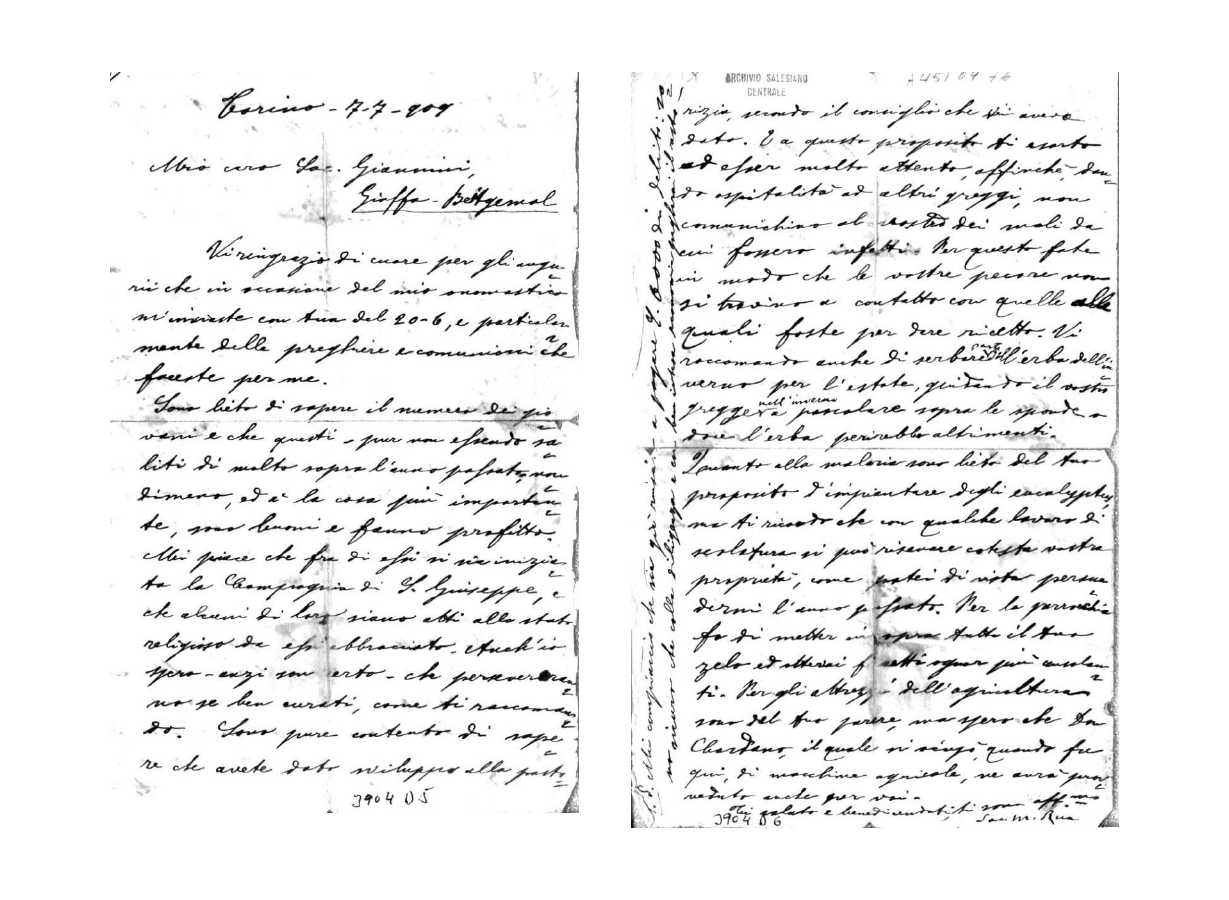 Torino - 7-7-909
Mio caro Sac. Giannini,
Giaffa - Beitgemal
Vi ringrazio di cuore per gli augu-
rii che in occasione del mio onomastico
m'inviaste con tua del 20-6, e particolar-
mente delle preghiere e comunioni che
faceste per me.
Sono lieto di sapere il numero dei gio-
vani e che questi - pur non essendo sa-
liti di molto sopra l'anno passato, non-
dimeno, ed è la cosa più importan-
te, sono buoni e fanno profitto.
Mi piace che fra di essi si sia inizia-
ta la Compagnia di S. Giuseppe, e
che alcuni di loro siano atti allo stato
religioso da essi abbracciato. Anch'io
spero - anzi son certo - che persevereran-
no se ben curati, come ti raccoman-
do. Sono pure contento di sape-
re che avete dato sviluppo alla pasto-
3904 D5
ARCHIVIO SALESIANO
CENTRALE
A 451 04 76
rizia, secondo il consiglio che vi avevo
dato. E a questo proposito ti esorto
ad esser molto attento, affinchè, dan-
do ospitalità ad altri greggi, non
comunichino al vostro dei mali da
cui fossero infetti. Per questo fate
in modo che le vostre pecore non
si trovino a contatto con quelle alle
quali foste per dare ricetto. Vi
raccomando anche di serbare parte dell'erba dell'in-
verno per l'estate, guidando il vostro
gregge nell'inverno a pascolare sopra le sponde o
dove l'erba perirebbe altrimenti.
Quanto alla malaria sono lieto del tuo
proposito d'impiantare degli eucalyptus,
ma ti ricordo che con qualche lavoro di
scolatura si può risanare cotesta vostra
proprietà, come potei di vista persua-
dermi l'anno passato. Per la parrocchia
fa di metter in opra tutto il tuo
zelo ed otterrai effetti ognor più consolan-
ti. Per gli attrezzi dell'agricoltura
sono del tuo parere, ma spero che Don
, il quale si occupò, quando fu
qui, di macchine agricole, ne avrà prov-
veduto anche per voi.
Ti saluto e benedicendoti, ti sono aff.mo
Sac. M. Rua
3904 D6
P.S. Mi compiaccio che sia già riuscito a pagare L. 6000 di debiti: so-
no sicuro che colla diligenza e